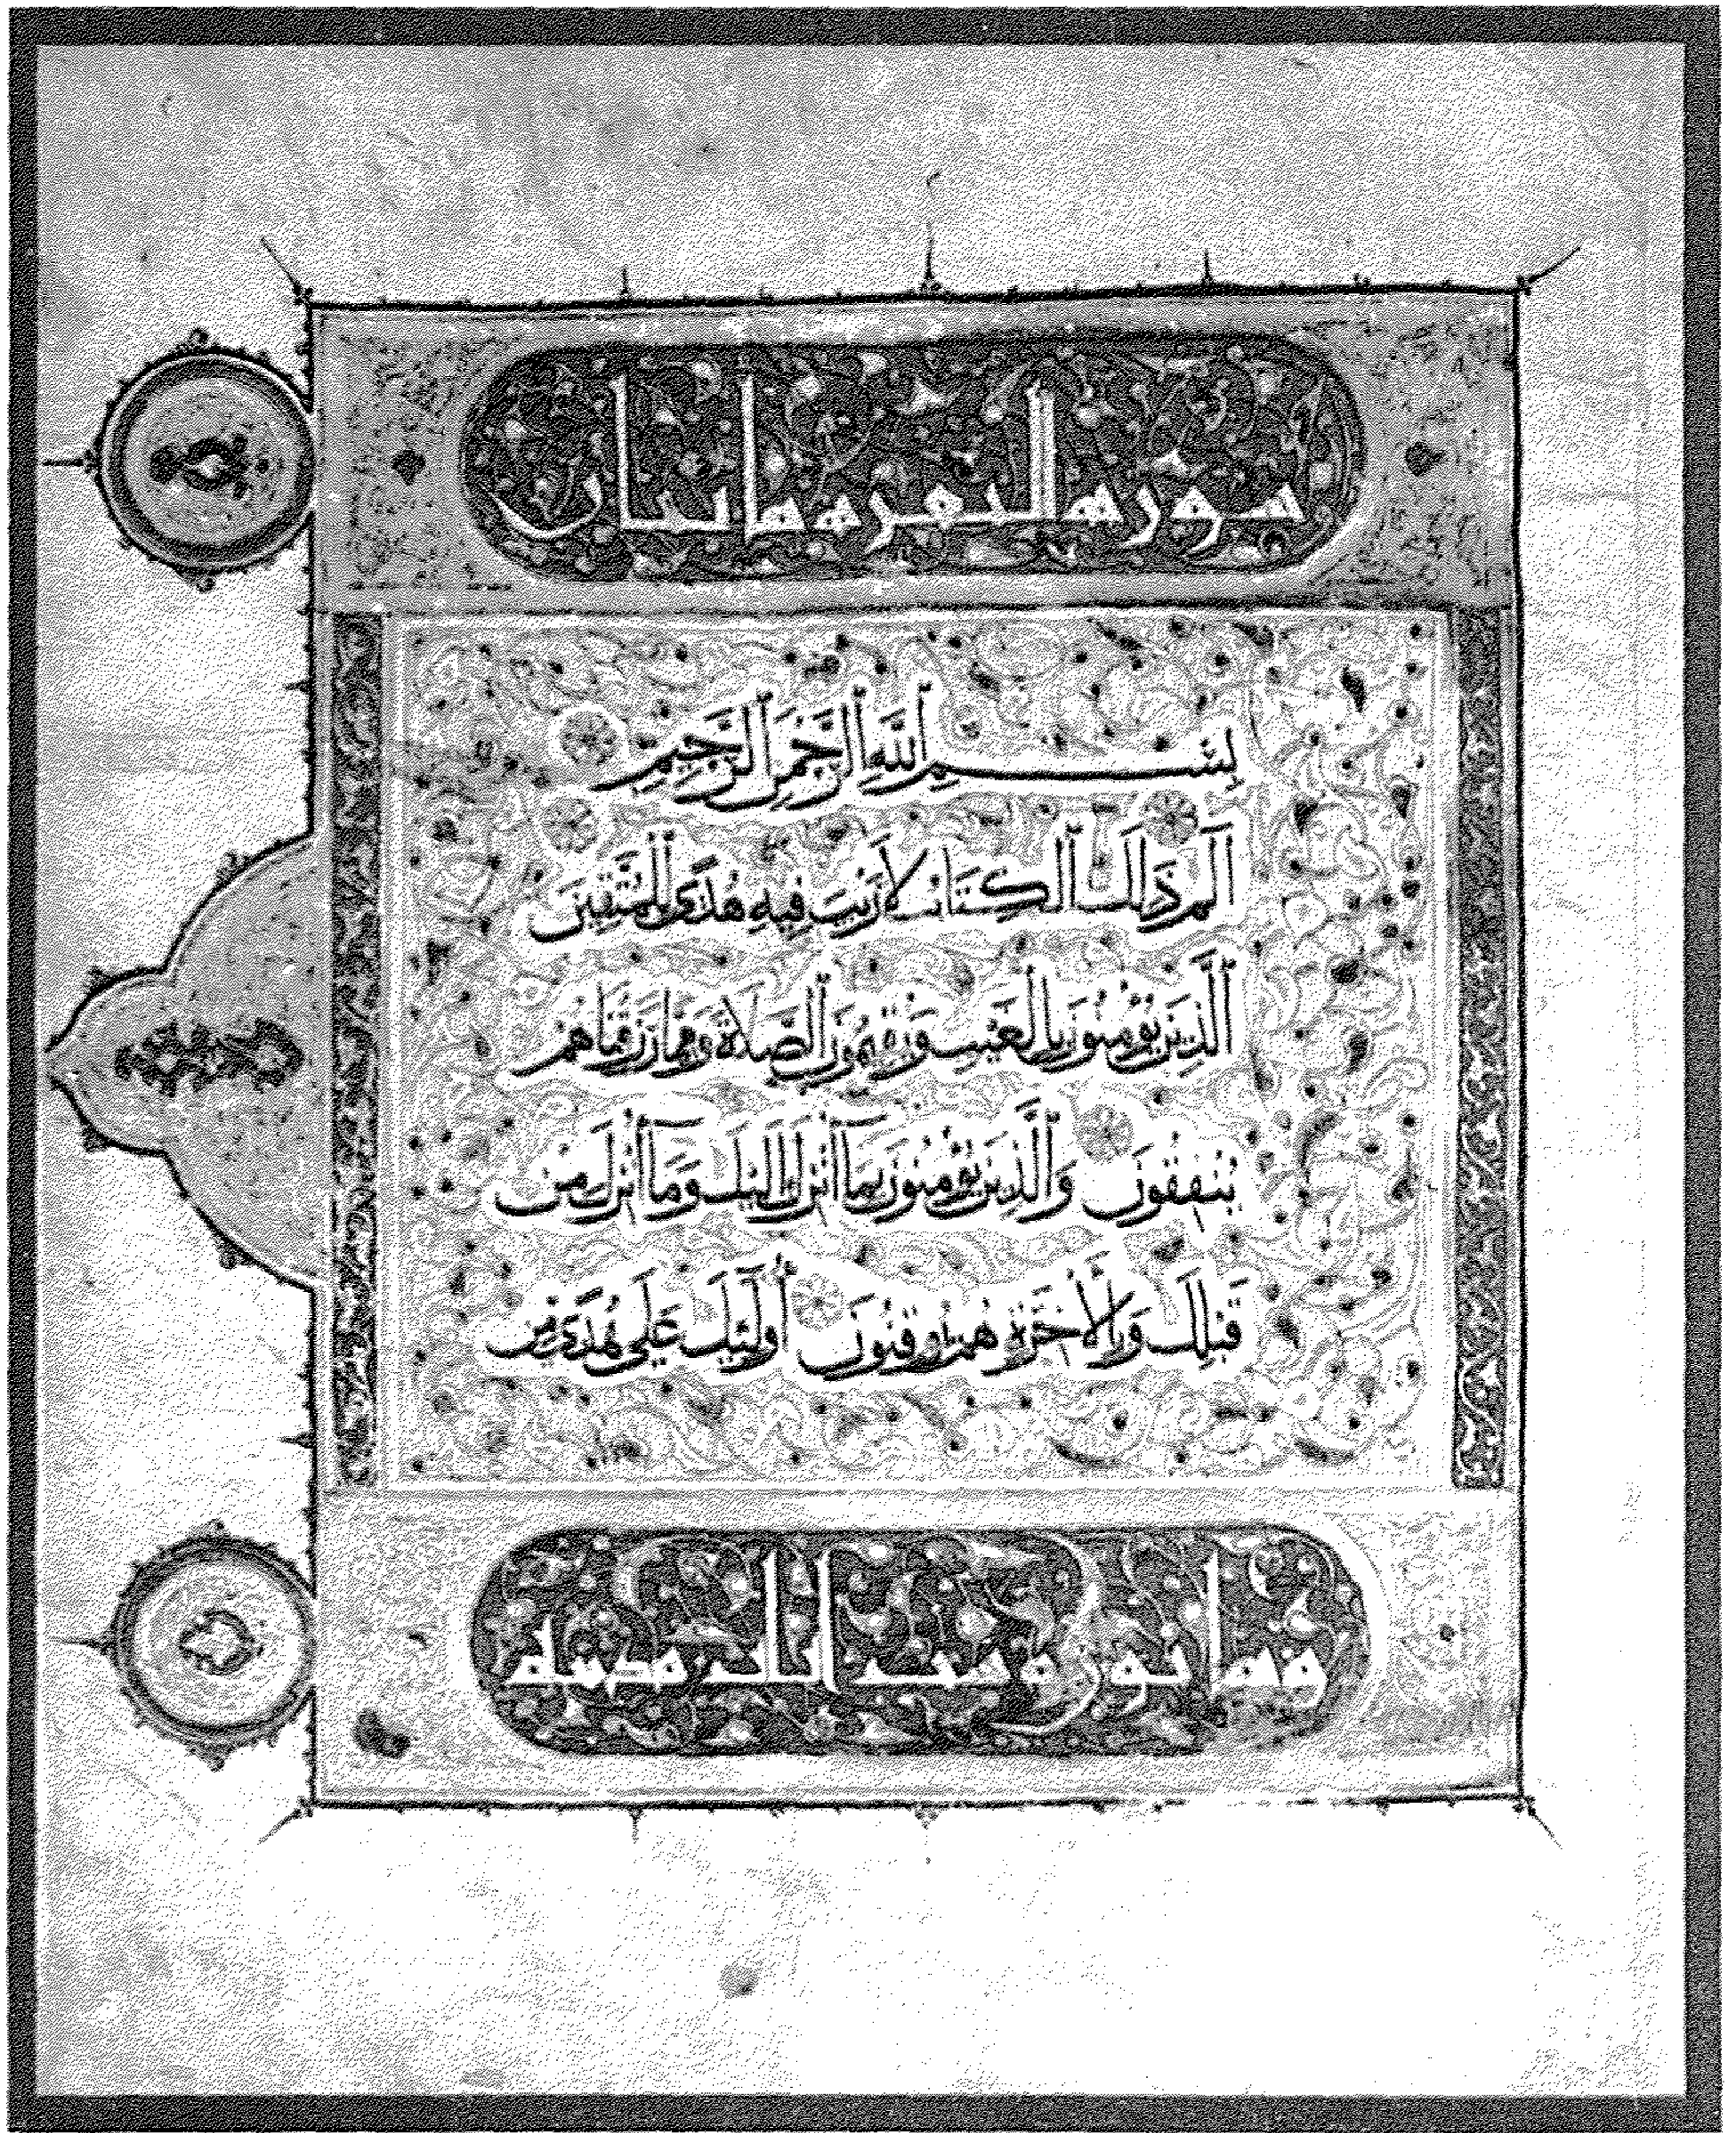 سورة البقرة مائتان
بِسْمِ اللَّهِ الرَّحْمَنِ الرَّحِيمِ
الٓمٓ ذَلِكَ الْكِتَابُ لَا رَيْبَ فِيهِ هُدًى لِلْمُتَّقِينَ
الَّذِينَ يُؤْمِنُونَ بِالْغَيْبِ وَيُقِيمُونَ الصَّلَاةَ وَمِمَّا رَزَقْنَاهُمْ
يُنْفِقُونَ وَالَّذِينَ يُؤْمِنُونَ بِمَآ أُنْزِلَ إِلَيْكَ وَمَآ أُنْزِلَ مِنْ
قَبْلِكَ وَبِالْآخِرَةِ هُمْ يُوقِنُونَ أُولَئِكَ عَلَى هُدًى مِنْ
وثمانون وست آيات مدنية